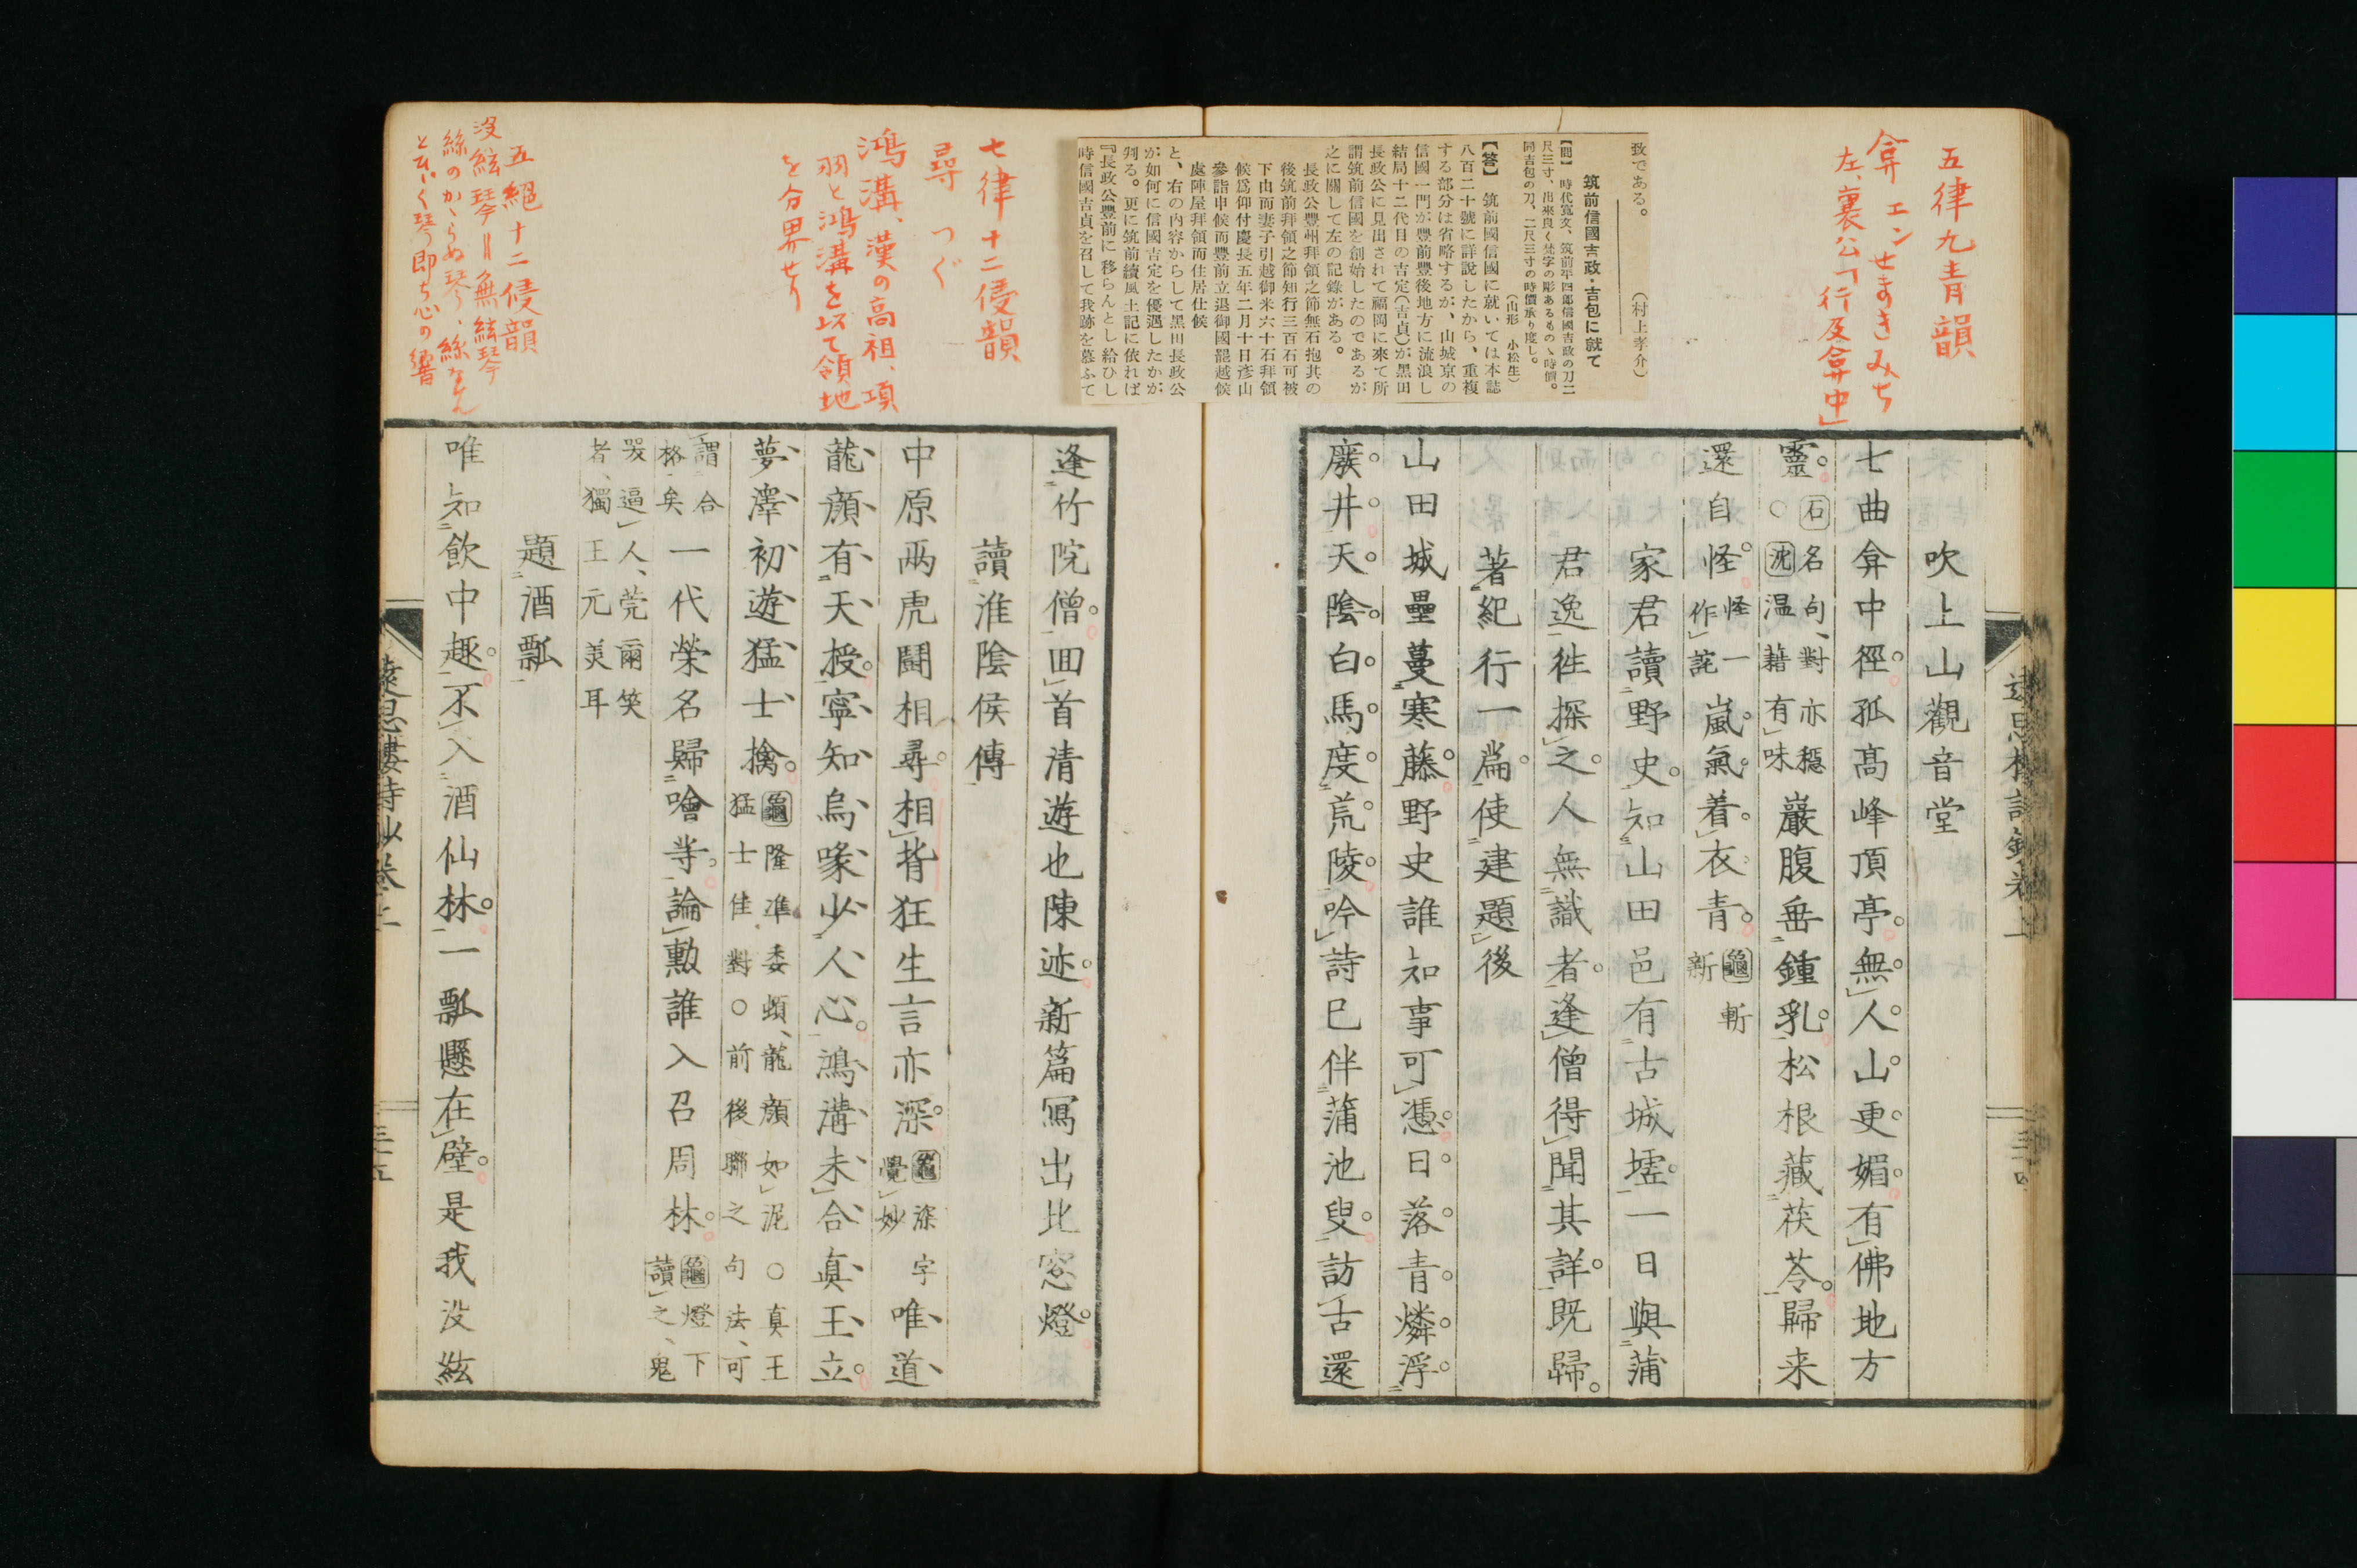 五律九青韻
弇エンせまきみち
左、襄公「行及弇中」
致である。
(村上孝介)
筑前信國吉政・吉包に就て
【問】 時代寬文、筑前平四郎信國吉政の刀二
尺三寸、出來良く梵字の彫あるもの、時價。
同吉包の刀、二尺三寸の時價承り度し。
(山形 小松生)
【答】 筑前國信國に就いては本誌
八百二十號に詳說したから、重複
する部分は省略するが、山城京の
信國一門が豐前豐後地方に流浪し
結局十二代目の吉定(吉貞)が黑田
長政公に見出されて福岡に來て所
謂筑前信國を創始したのであるが
之に關して左の記錄がある。
長政公豐州拜領之節無石抱其の
後筑前拜領之節知行三百石可被
下由而妻子引越御米六十石拜領
候爲仰付慶長五年二月十日彥山
參詣申候而豐前立退御國罷越候
處陣屋拜領而住居仕候
と、右の內容からして黑田長政公
が如何に信國吉定を優遇したかが
判る。更に筑前續風土記に依れば
『長政公豐前に移らんとし給ひし
時信國吉貞を召して我跡を慕ふて
吹上山觀音堂
七曲弇中徑孤髙峰頂亭無人山更媚有佛地方
靈 石名句、對亦穩○沈温藉有味 巖腹垂鍾乳松根藏茯苓歸来
還自怪 怪一作詫 嵐氣着衣青 龜斬新
家君讀野史知山田邑有古城墟一日與蒲
君逸徃探之人無識者逢僧得聞其詳既歸
著紀行一篇使建題後
山田城壘蔓寒藤野史誰知事可憑日落青燐浮
廢井天陰白馬度荒陵吟詩已伴蒲池叟訪古還
遠思樓詩鈔卷上
三十四
七律十二侵韻
尋 つぐ
鴻溝、漢の高祖、項
羽と鴻溝を以て領地
を分界せり
五絕十二侵韻
沒絃琴＝無絃琴
絲のかゝらぬ琴、絲なくん
逢竹院僧囬首清遊也陳迹新篇冩出北窓燈
讀淮陰侯傳
中原兩虎鬪相尋相背狂生言亦深 龜深字覺妙 唯道
龍顏有天授寧知烏喙少人心鴻溝未合眞王立
夢澤初遊猛士擒 龜隆準委頓、龍顏如泥○真王猛士佳對○前後聯之句法、可
謂合格矣 一代榮名歸噲等論勳誰入召周林 龜燈下讀之、鬼
器逼人、莞爾笑者、獨王元美耳
題酒瓢
唯知飲中趣不入酒仙林一瓢懸在壁是我没絃
遠思樓詩鈔卷上
三十五